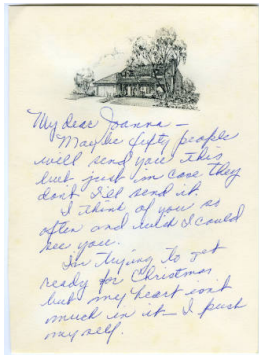 My dear Joanna —
Maybe fifty people
will send you this
but just in case they
don't I'll send it
I think of you so
often and wish I could
see you.
I'm trying to get
ready for Christmas
but my heart isn't
much in it — I push
myself.